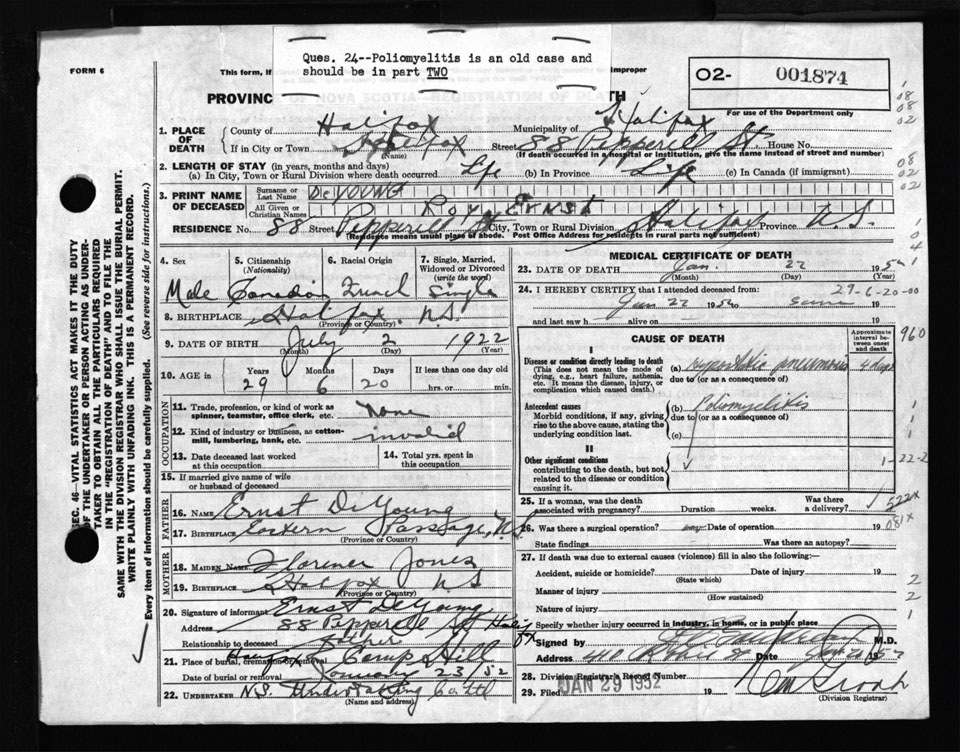 Ques. 24--Poliomyelitis is an old case and
should be in part TWO
FORM 6
This form, if
improper
02- 001874
PROVINC OF NOVA SCOTIA—REGISTRATION OF DEATH
For use of the Department only
1. PLACE OF DEATH
County of Halifax
Municipality of Halifax
If in City or Town Halifax (Name) Street 88 Pepperell St House No.
(If death occurred in a hospital or institution, give the name instead of street and number)
2. LENGTH OF STAY (in years, months and days)
(a) In City, Town or Rural Division where death occurred Life (b) In Province Life (c) In Canada (if immigrant)
3. PRINT NAME OF DECEASED
Surname or Last Name DeYOUNG
All Given or Christian Names Roy Ernst
RESIDENCE No. 88 Street Pepperell St City, Town or Rural Division Halifax Province N.S.
(Residence means usual place of abode. Post Office Address for residents in rural parts not sufficient)
4. Sex
Male
5. Citizenship (Nationality)
Canadian
6. Racial Origin
French
7. Single, Married, Widowed or Divorced (write the word)
Single
8. BIRTHPLACE Halifax N.S.
(Province or Country)
9. DATE OF BIRTH July 2 1922
(Month) (Day) (Year)
10. AGE
Years Months Days If less than one day old
29 6 20 hrs. or min.
OCCUPATION
11. Trade, profession, or kind of work as spinner, teamster, office clerk, etc. None
12. Kind of industry or business, as cotton-mill, lumbering, bank, etc. invalid
13. Date deceased last worked at this occupation
14. Total yrs. spent in this occupation
15. If married give name of wife or husband of deceased
FATHER
16. Name Ernst DeYoung
17. Birthplace Eastern Passage, N.S.
(Province or Country)
MOTHER
18. Maiden Name Florence Jones
19. Birthplace Halifax N S
(Province or Country)
20. Signature of informant Ernst DeYoung
Address 88 Pepperell St Halifax
Relationship to deceased Father
21. Place of burial, cremation or removal Camp Hill
Date of burial or removal January 23/52
22. UNDERTAKER N.S. Undertaking Co Ltd
(Name and address)
MEDICAL CERTIFICATE OF DEATH
23. DATE OF DEATH Jan. 22 195
(Month) (Day) (Year)
24. I HEREBY CERTIFY that I attended deceased from 29-6-20-00
Jan 22 195 same
and last saw h alive on 19
CAUSE OF DEATH
Approximate interval between onset and death
960
I
Disease or condition directly leading to death
(This does not mean the mode of dying, e.g., heart failure, asthenia, etc. It means the disease, injury, or complication which caused death.)
(a) Hypostatic pneumonia 4 days
due to (or as a consequence of)
Antecedent causes
Morbid conditions, if any, giving rise to the above cause, stating the underlying condition last.
(b) Poliomyelitis
due to (or as a consequence of)
(c)
II
Other significant conditions
contributing to the death, but not related to the disease or condition causing it.
1-22-2
25. If a woman, was the death associated with pregnancy? Duration weeks. Was there a delivery?
26. Was there a surgical operation? Date of operation 19
State findings Was there an autopsy?
27. If death was due to external causes (violence) fill in also the following:
Accident, suicide or homicide? Date of injury 19
(State which)
Manner of injury
(How sustained)
Nature of injury
Specify whether injury occurred in industry, in home, or in public place
Signed by M.D.
Address Date 195
28. Division Registrar's Record Number
29. Filed JAN 29 1952 19
(Division Registrar)
SEC. 46—VITAL STATISTICS ACT MAKES IT THE DUTY
OF THE UNDERTAKER OR PERSON ACTING AS UNDER-
TAKER TO OBTAIN ALL THE PARTICULARS REQUIRED
IN THE "REGISTRATION OF DEATH" AND TO FILE THE
SAME WITH THE DIVISION REGISTRAR WHO SHALL ISSUE THE BURIAL PERMIT.
WRITE PLAINLY WITH UNFADING INK. THIS IS A PERMANENT RECORD.
Every item of information should be carefully supplied. (See reverse side for instructions.)